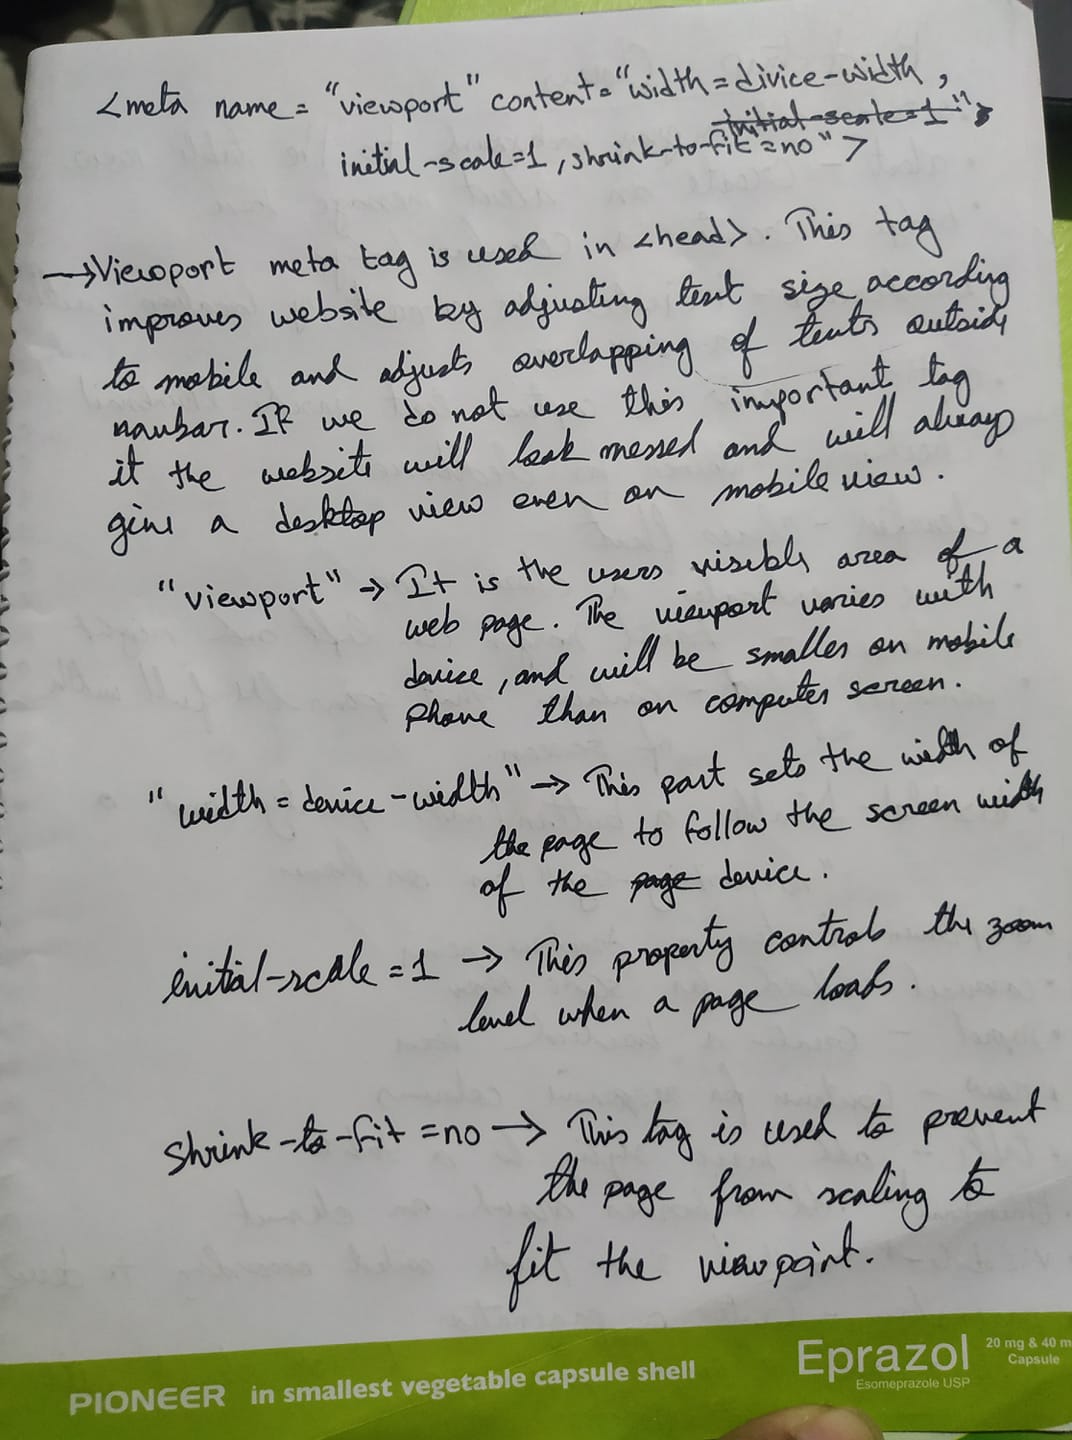 <meta name = "viewport" content = "width = divice-width,
initial-scale=1">
initial-scale=1, shrink-to-fit =no">
→Viewport meta tag is used in <head>. This tag
improves website by adjusting text size according
to mobile and adjusts overlapping of texts outside
navbar. If we do not use this important tag
it the website will look messed and will always
give a desktop view even on mobile view.
"viewport" → It is the users visible area of a
web page. The viewport varies with
device, and will be smaller on mobile
phone than on computer screen.
"width = device-width" → This part sets the width of
the page to follow the screen width
of the page device.
initial-scale = 1 → This property controls the zoom
level when a page loads.
shrink-to-fit =no → This tag is used to prevent
the page from scaling to
fit the viewpoint.
PIONEER in smallest vegetable capsule shell
Eprazol 20 mg & 40 m
Capsule
Esomeprazole USP